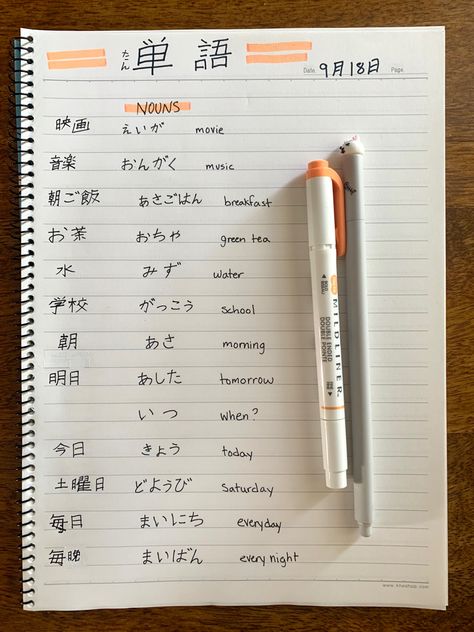 たん
単語
Date 9月18日 Page.
NOUNS
映画 えいが movie
音楽 おんがく music
朝ご飯 あさごはん breakfast
お茶 おちゃ green tea
水 みず water
学校 がっこう school
朝 あさ morning
明日 あした tomorrow
いつ when?
今日 きょう today
土曜日 どようび Saturday
毎日 まいにち everyday
毎晩 まいばん every night
MILDLINER
DOUBLE ENDED
DOUBLE POINTE